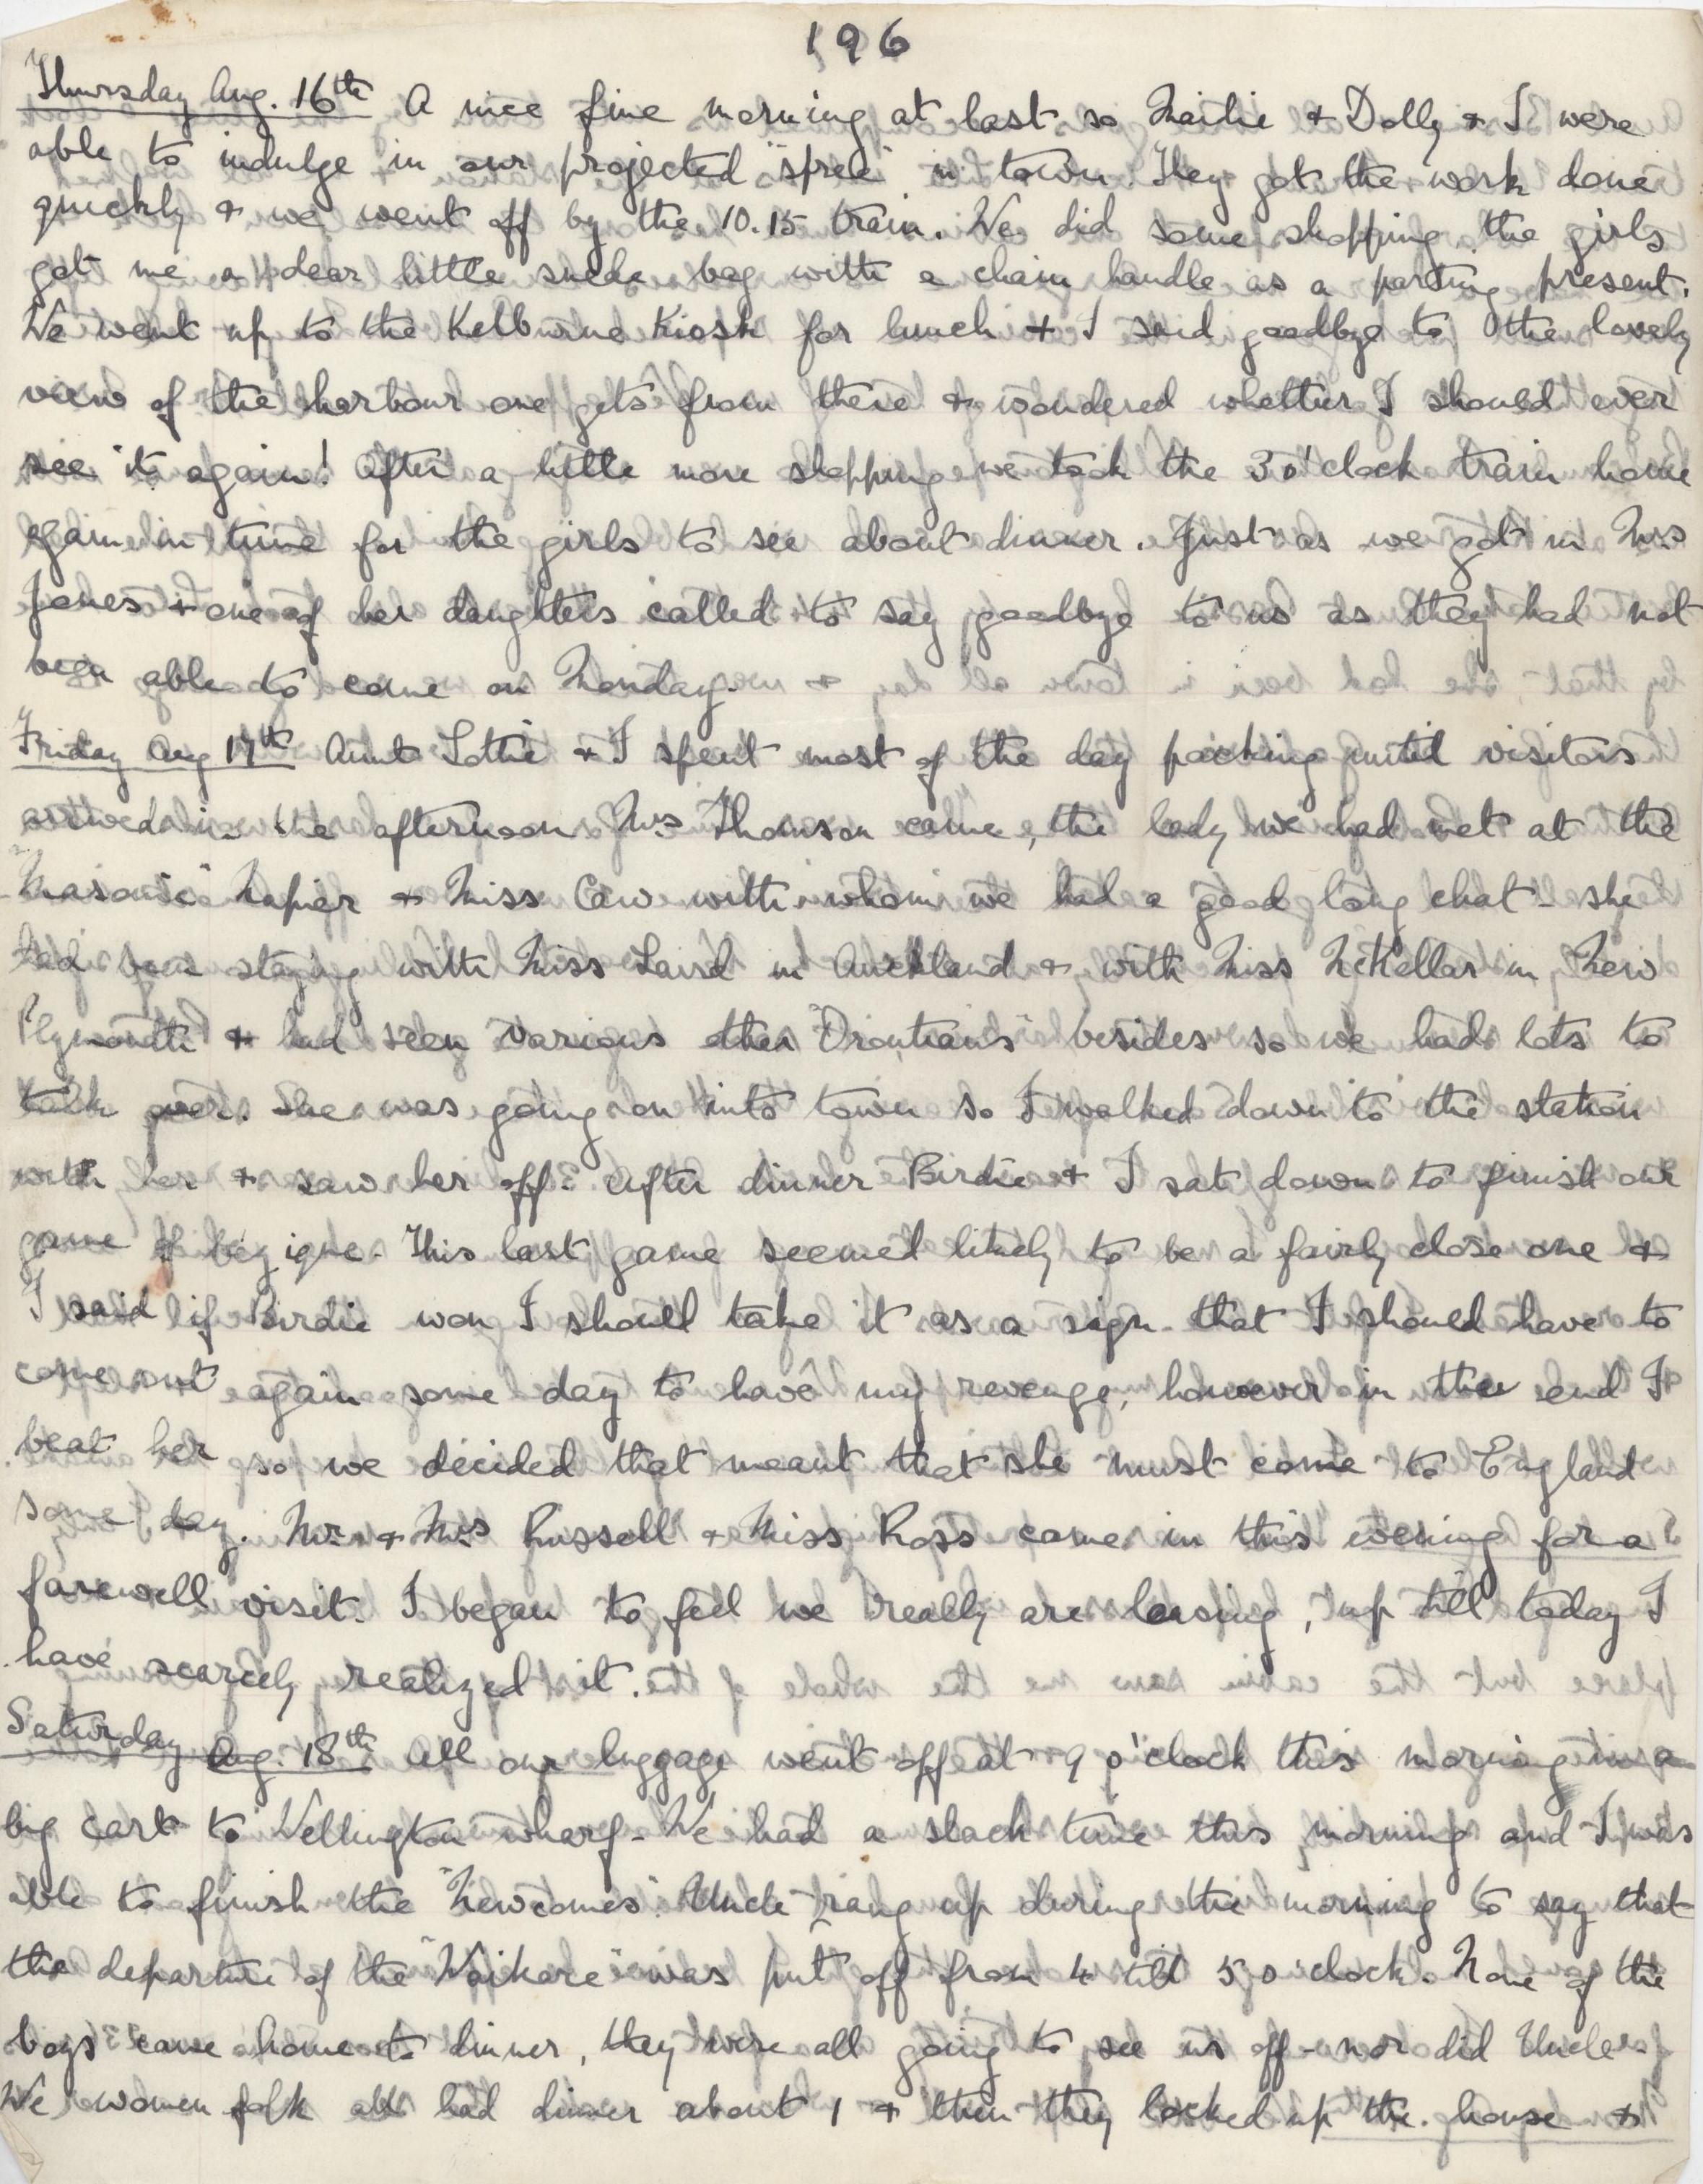 196
Thursday Aug. 16th A nice fine morning at last so Maitie + Dolly + I were
able to indulge in our projected "spree" in town. They got the work done
quickly + we went off by the 10.15 train. We did some shopping, the girls
got me a dear little suede bag with a chain handle as a parting present.
We went up to the Kelburne Kiosk for lunch + I said goodbye to the lovely
view of the harbour one gets from there + wondered whether I should ever
see it again! After a little more shopping we took the 3 o'clock train home
again in time for the girls to see about dinner. Just as we got in Mrs
Jones + one of her daughters called to say goodbye to us as they had not
been able to come on Monday.
Friday Aug 17th Aunt Lottie + I spent most of the day packing until visitors
arrived in the afternoon. Mrs Thomson came, the lady we had met at the
"Masonic" Napier + Miss Caw with whom we had a good long chat - she
had been staying with Miss Laird in Auckland + with Miss McKellar in New
Plymouth + had seen various other "Orontians" besides so we had lots to
talk over. She was going on into town so I walked down to the station
with her + saw her off. After dinner Birdie + I sat down to finish our
game of bezique. This last game seemed likely to be a fairly close one +
I said if Birdie won I should take it as a sign that I should have to
come out again some day to have my revenge, however in the end I
beat her so we decided that meant that she must come to England
some day. Mr. + Mrs Russell + Miss Ross came in this evening for a
farewell visit. I began to feel we really are leaving, up till today I
have scarcely realized it.
Saturday Aug. 18th All our luggage went off at 9 o'clock this morning in a
big cart to Wellington wharf - We had a slack time this morning and I was
able to finish the "Newcomes". Uncle rang up during the morning to say that
the departure of the "Waikare" was put off from 4 till 5 o'clock. None of the
boys came home to dinner, they were all going to see us off - nor did Uncle.
We women folk all had dinner about 1 + then they locked up the house +